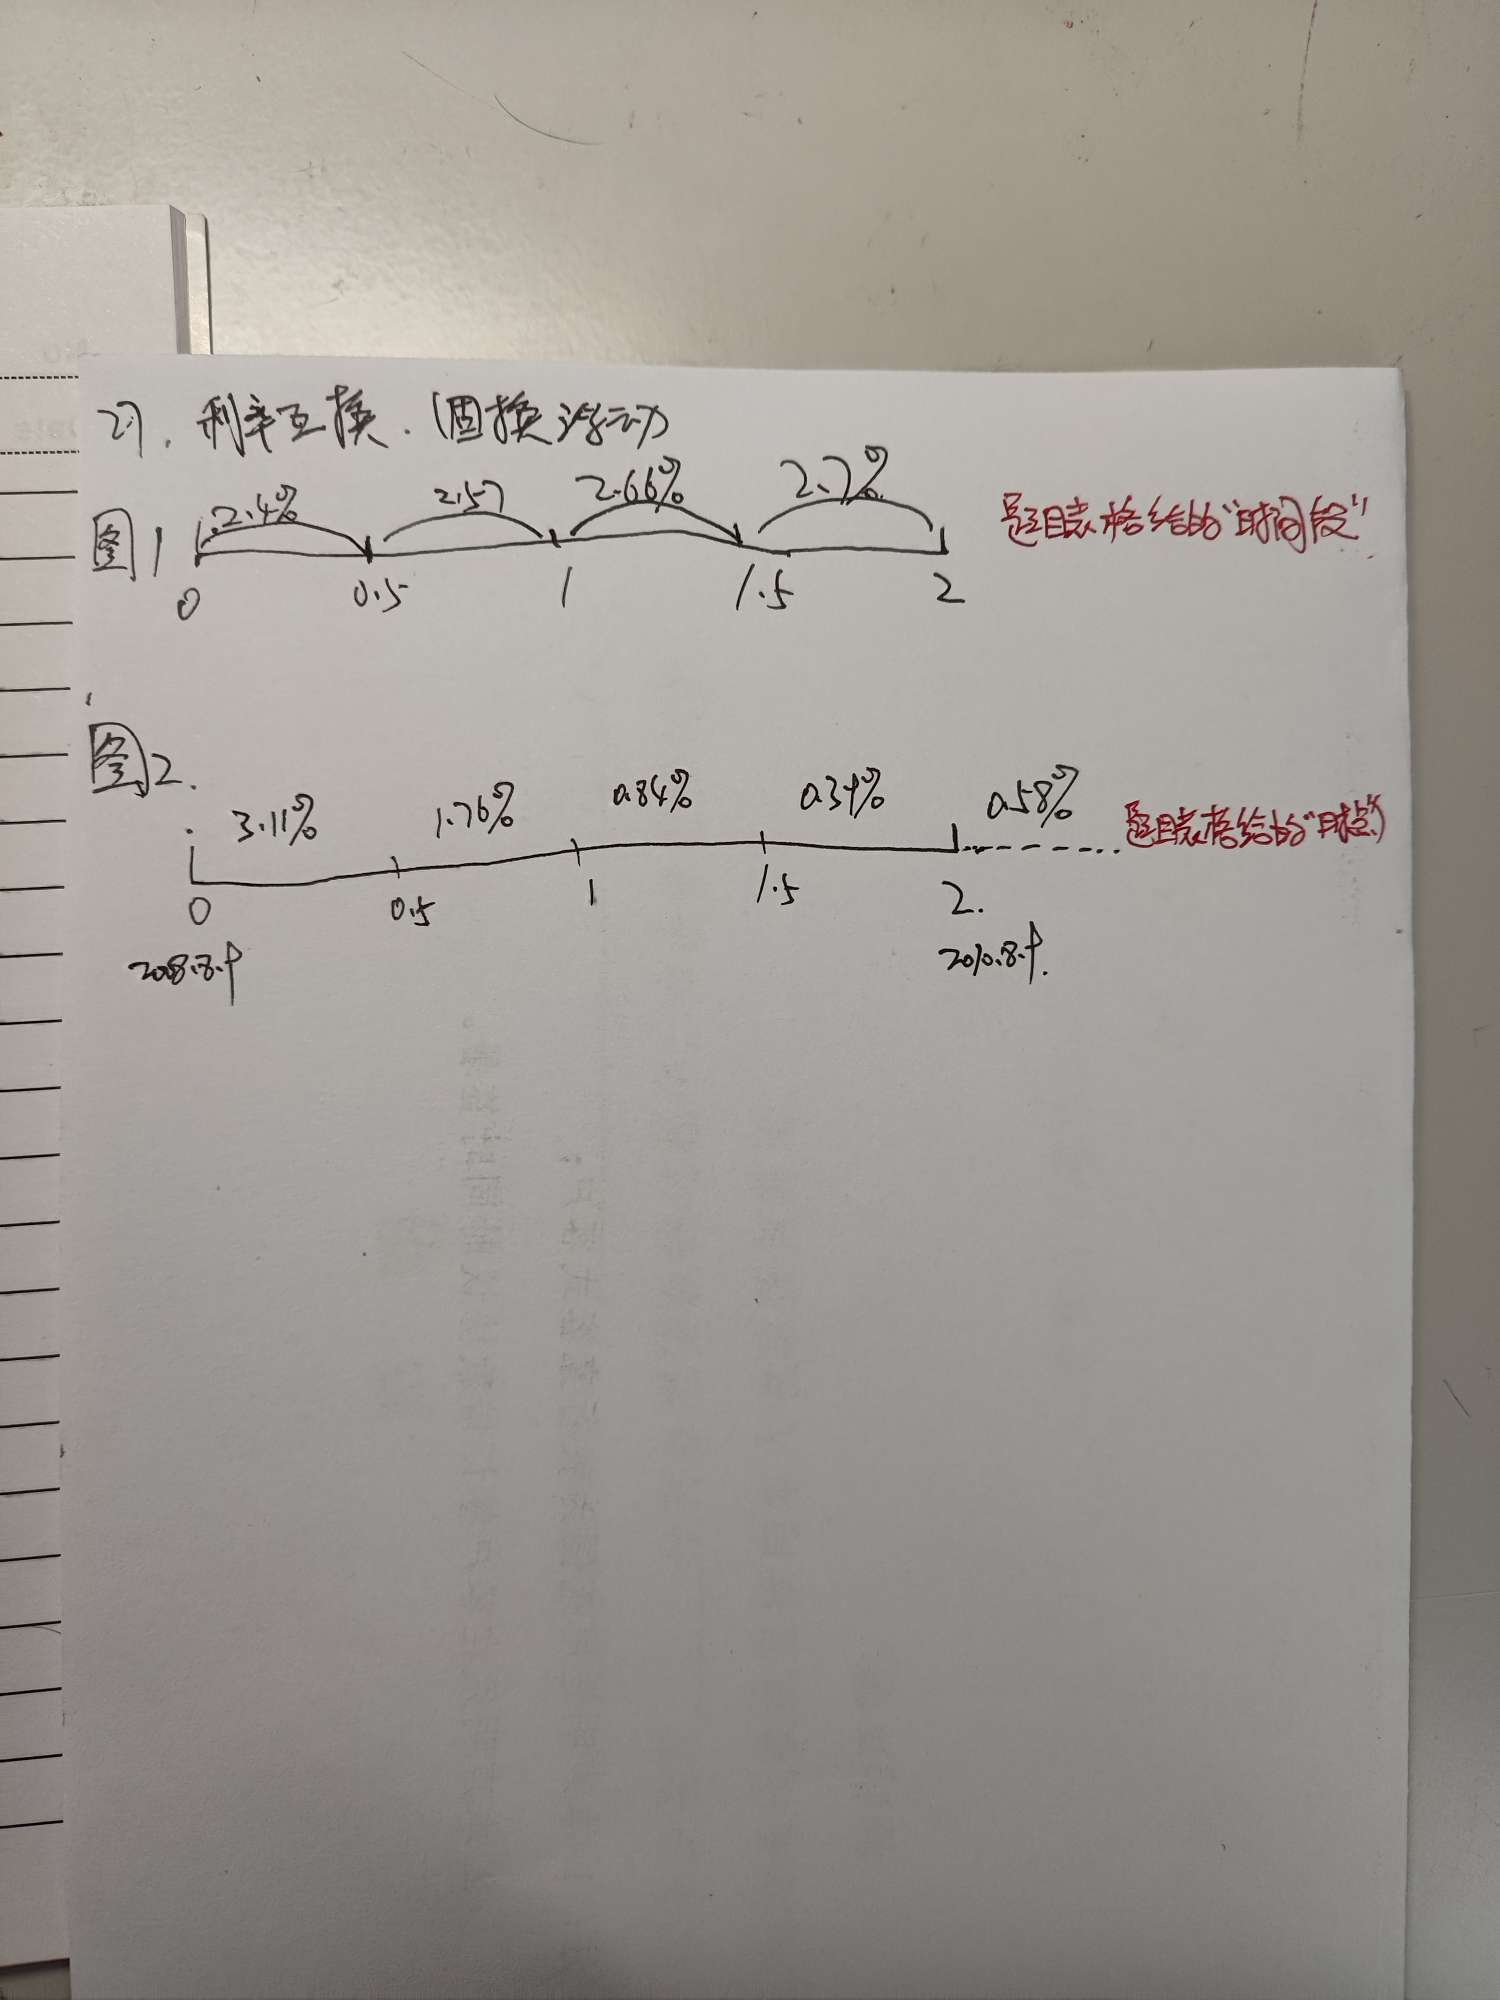 27. 利率互换.(固换浮动)
图1 2.4% 2.57 2.66% 2.7% 题目表格给的"时间段"
0 0.5 1 1.5 2
图2. 3.11% 1.76% 0.84% 0.39% 0.58% 题目表格给的"时点"
0 0.5 1 1.5 2.
2008.8.中 2010.8.中.